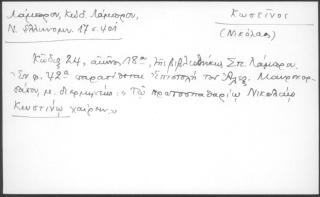 Λάμπρου, Κώδ. Λάμπρου,
Ν. Ελληνομν. 17 σ. 401
Κωστῖνος
(Νικόλαος)
Κῶδιξ 24, αἰῶνος 18ου, βιβλιοθήκης Σπ. Λάμπρου.
Ἐν φ. 42α παρατίθεται ἐπιστολὴ τοῦ Ἀλεξ. Μαυροκορ-
δάτου, μ. διερμηνέως: «Τῷ πρωτοσπαθαρίῳ Νικολάῳ
Κωστίνῳ χαίρειν»